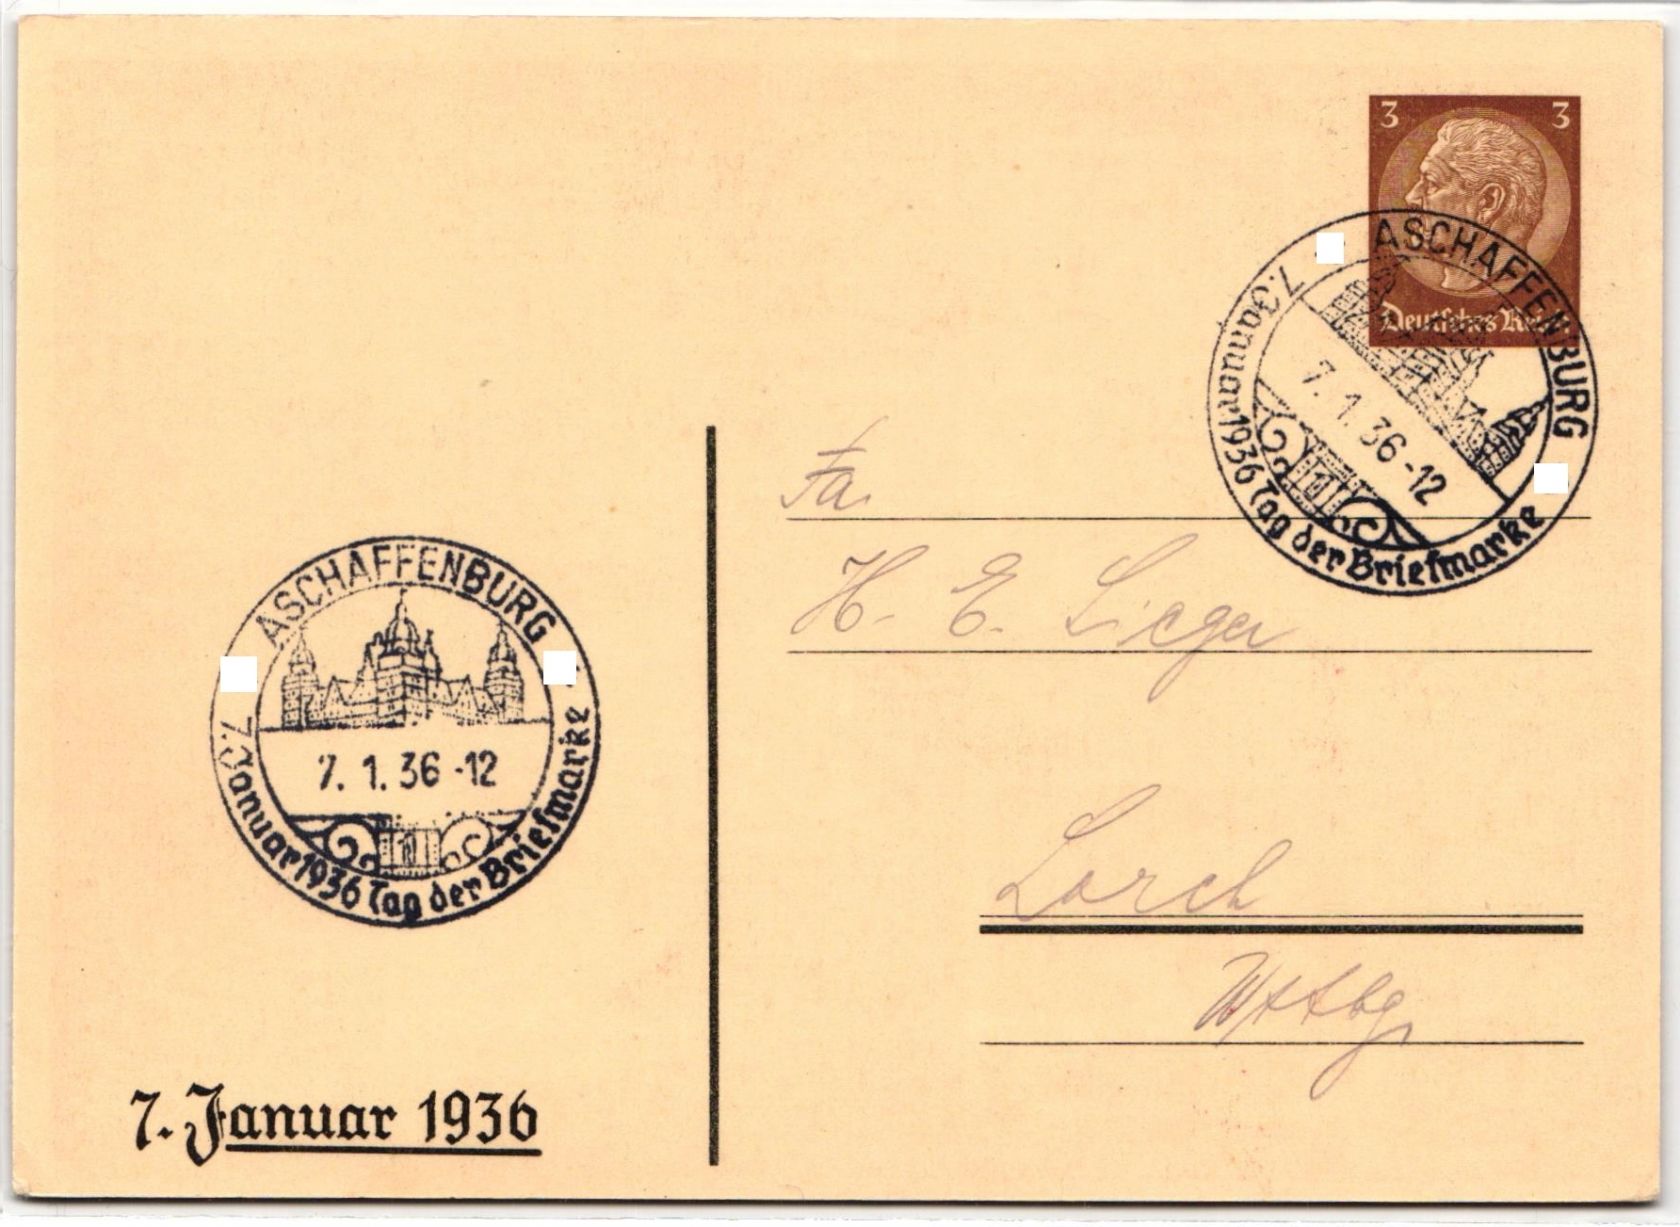 3 3
Deutsches Reich
ASCHAFFENBURG
7. 1. 36 -12
7. Januar 1936 Tag der Briefmarke
Fa.
H. E. Sieger
Lorch
Wttbg.
ASCHAFFENBURG
7. 1. 36 -12
7. Januar 1936 Tag der Briefmarke
7. Januar 1936